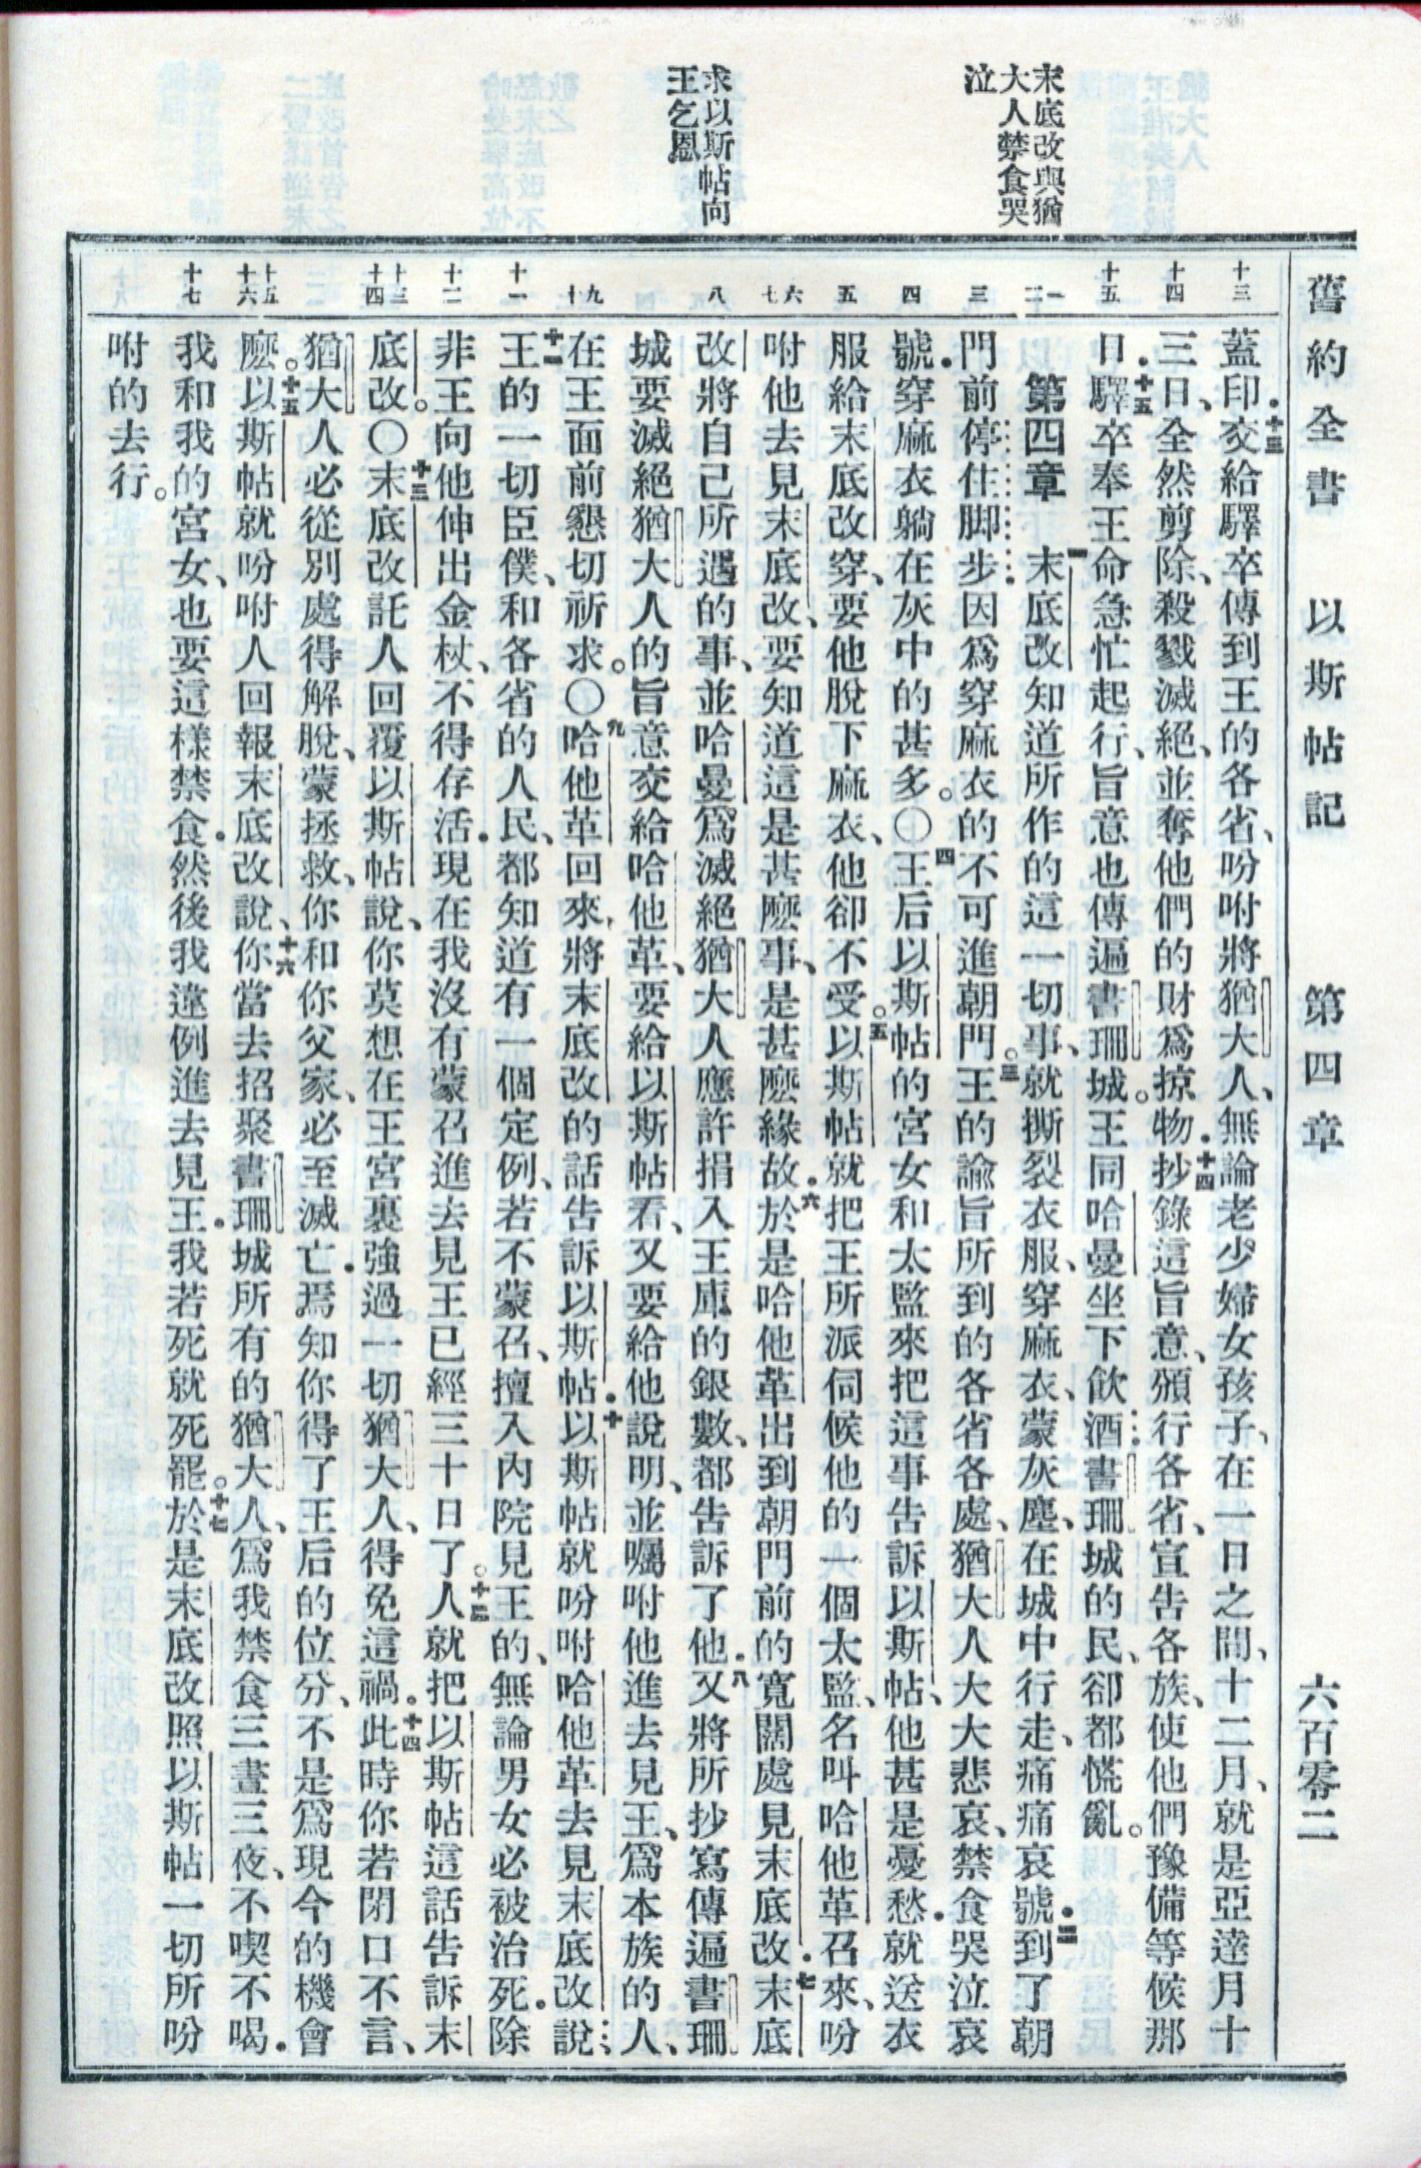 舊約全書　以斯帖記　第四章　六百零二
末底改與猶
大人禁食哭
泣
求以斯帖向
王乞恩
十三
十四
十五
一
二
三
四
五
六
七
八
九
十
十一
十二
十三
十四
十五
十六
十七
蓋印、十三交給驛卒傳到王的各省、吩咐將猶大人、無論老少婦女孩子、在一日之間、十二月、就是亞達月十
三日、全然剪除、殺戮滅絕、並奪他們的財爲掠物．十四抄錄這旨意、頒行各省、宣告各族、使他們豫備等候那
日．十五驛卒奉王命急忙起行、旨意也傳遍書珊城。王同哈曼坐下飲酒．書珊城的民、卻都慌亂。
第四章　一末底改知道所作的這一切事、就撕裂衣服、穿麻衣、蒙灰塵、在城中行走、痛痛哀號．二到了朝
門前停住脚步．因爲穿麻衣的不可進朝門。三王的諭旨所到的各省各處、猶大人大大悲哀、禁食哭泣哀
號．穿麻衣躺在灰中的甚多。〇四王后以斯帖的宮女和太監來把這事告訴以斯帖、他甚是憂愁．就送衣
服給末底改穿、要他脫下麻衣、他卻不受。五以斯帖就把王所派伺候他的一個太監、名叫哈他革召來、吩
咐他去見末底改、要知道這是甚麽事、是甚麽緣故．六於是哈他革出到朝門前的寬闊處見末底改．七末底
改將自己所遇的事、並哈曼爲滅絕猶大人應許捐入王庫的銀數、都告訴了他．八又將所抄寫傳遍書珊
城要滅絕猶大人的旨意交給哈他革、要給以斯帖看、又要給他說明、並囑咐他進去見王、爲本族的人、
在王面前懇切祈求。〇九哈他革回來、將末底改的話告訴以斯帖．十以斯帖就吩咐哈他革去見末底改說．
十一王的一切臣僕、和各省的人民、都知道有一個定例、若不蒙召、擅入內院見王的、無論男女必被治死．除
非王向他伸出金杖、不得存活．現在我沒有蒙召進去見王已經三十日了。十二人就把以斯帖這話告訴末
底改。〇十三末底改託人回覆以斯帖說、你莫想在王宮裏強過一切猶大人、得免這禍。十四此時你若閉口不言、
猶大人必從別處得解脫、蒙拯救、你和你父家、必至滅亡．焉知你得了王后的位分、不是爲現今的機會
麽。十五以斯帖就吩咐人回報末底改說、十六你當去招聚書珊城所有的猶大人、爲我禁食三晝三夜、不喫不喝．
我和我的宮女、也要這樣禁食．然後我違例進去見王．我若死就死罷。十七於是末底改照以斯帖一切所吩
咐的去行。